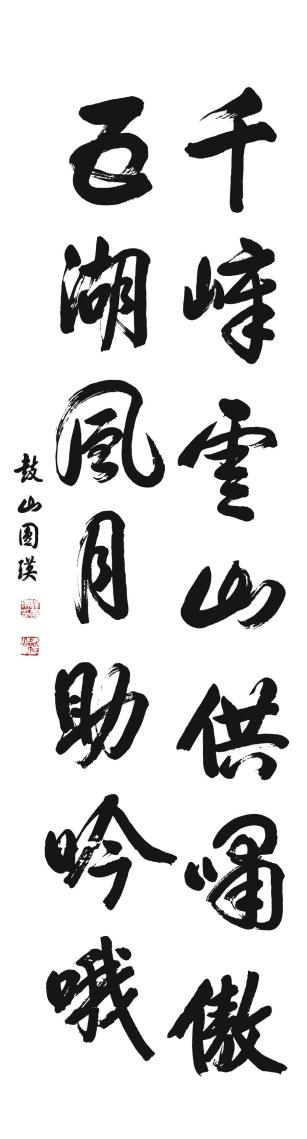 千嶂雲山供嘯傲
五湖風月助吟哦
鼓山圓瑛